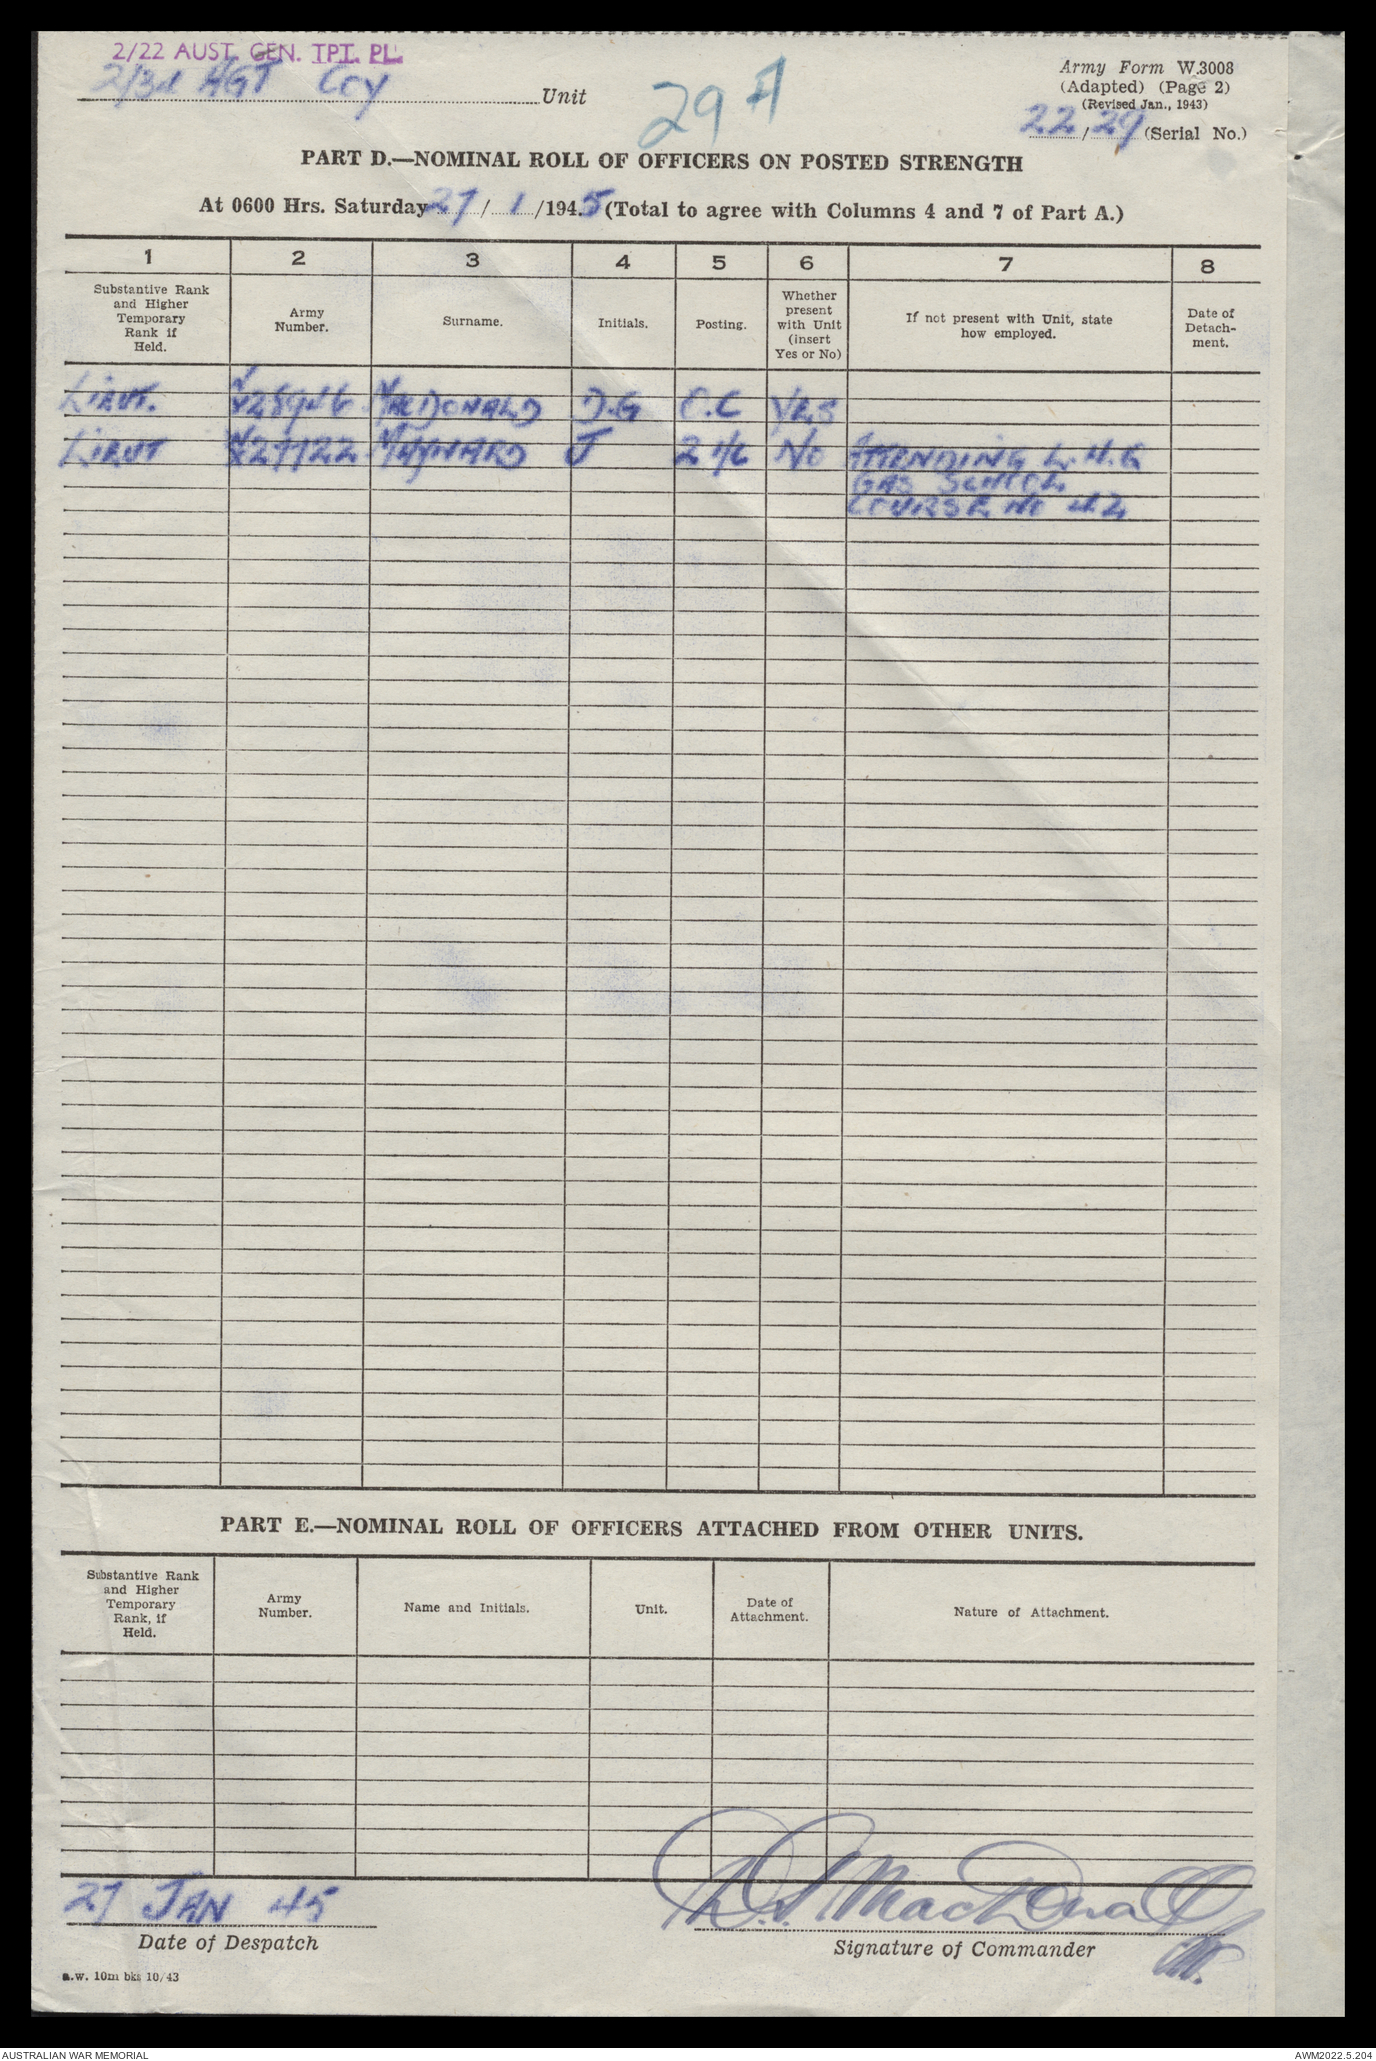 2/22 AUST. GEN. TPT. PL.
2/3rd AGT Coy Unit
29 A
Army Form W.3008
(Adapted) (Page 2)
(Revised Jan., 1943)
22/29 (Serial No.)
PART D.—NOMINAL ROLL OF OFFICERS ON POSTED STRENGTH
At 0600 Hrs. Saturday 27/1/1945 (Total to agree with Columns 4 and 7 of Part A.)
1 2 3 4 5 6 7 8
Substantive Rank and Higher Temporary Rank if Held. Army Number. Surname. Initials. Posting. Whether present with Unit (insert Yes or No) If not present with Unit, state how employed. Date of Detach-ment.
LIEUT. MACDONALD D.G O.C YES
LIEUT MAYNARD J 2 I/C No ATTENDING L.H.Q
GAS SCHOOL
COURSE No 42
PART E.—NOMINAL ROLL OF OFFICERS ATTACHED FROM OTHER UNITS.
Substantive Rank and Higher Temporary Rank, if Held. Army Number. Name and Initials. Unit. Date of Attachment. Nature of Attachment.
27 JAN 45 D.G MacDonald
Date of Despatch Signature of Commander
Lt.
a.w. 10m bks 10/43
AUSTRALIAN WAR MEMORIAL AWM2022.5.204